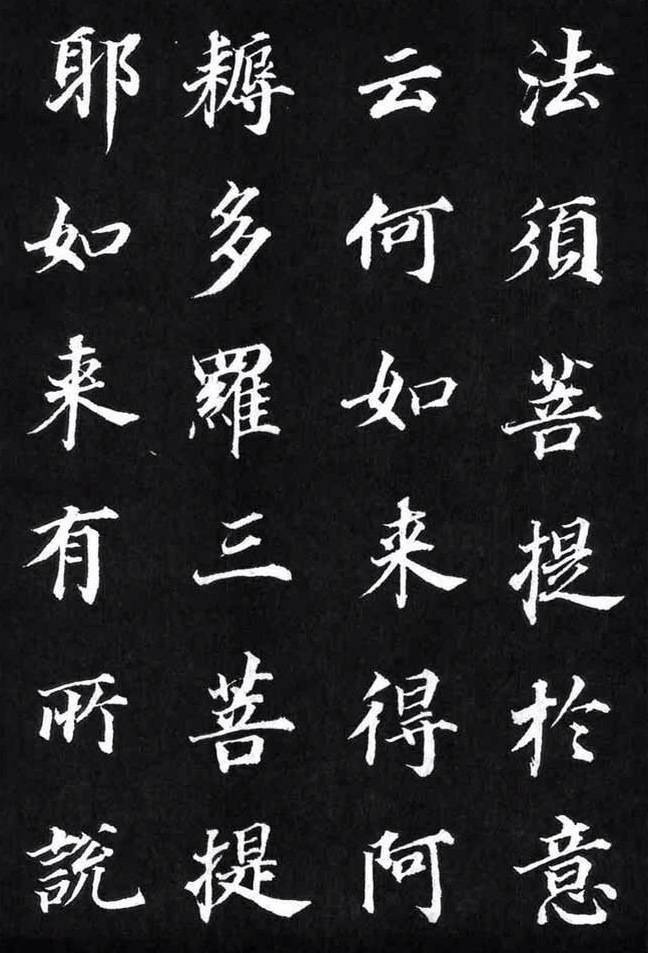 法須菩提於意
云何如来得阿
耨多羅三菩提
耶如来有所說